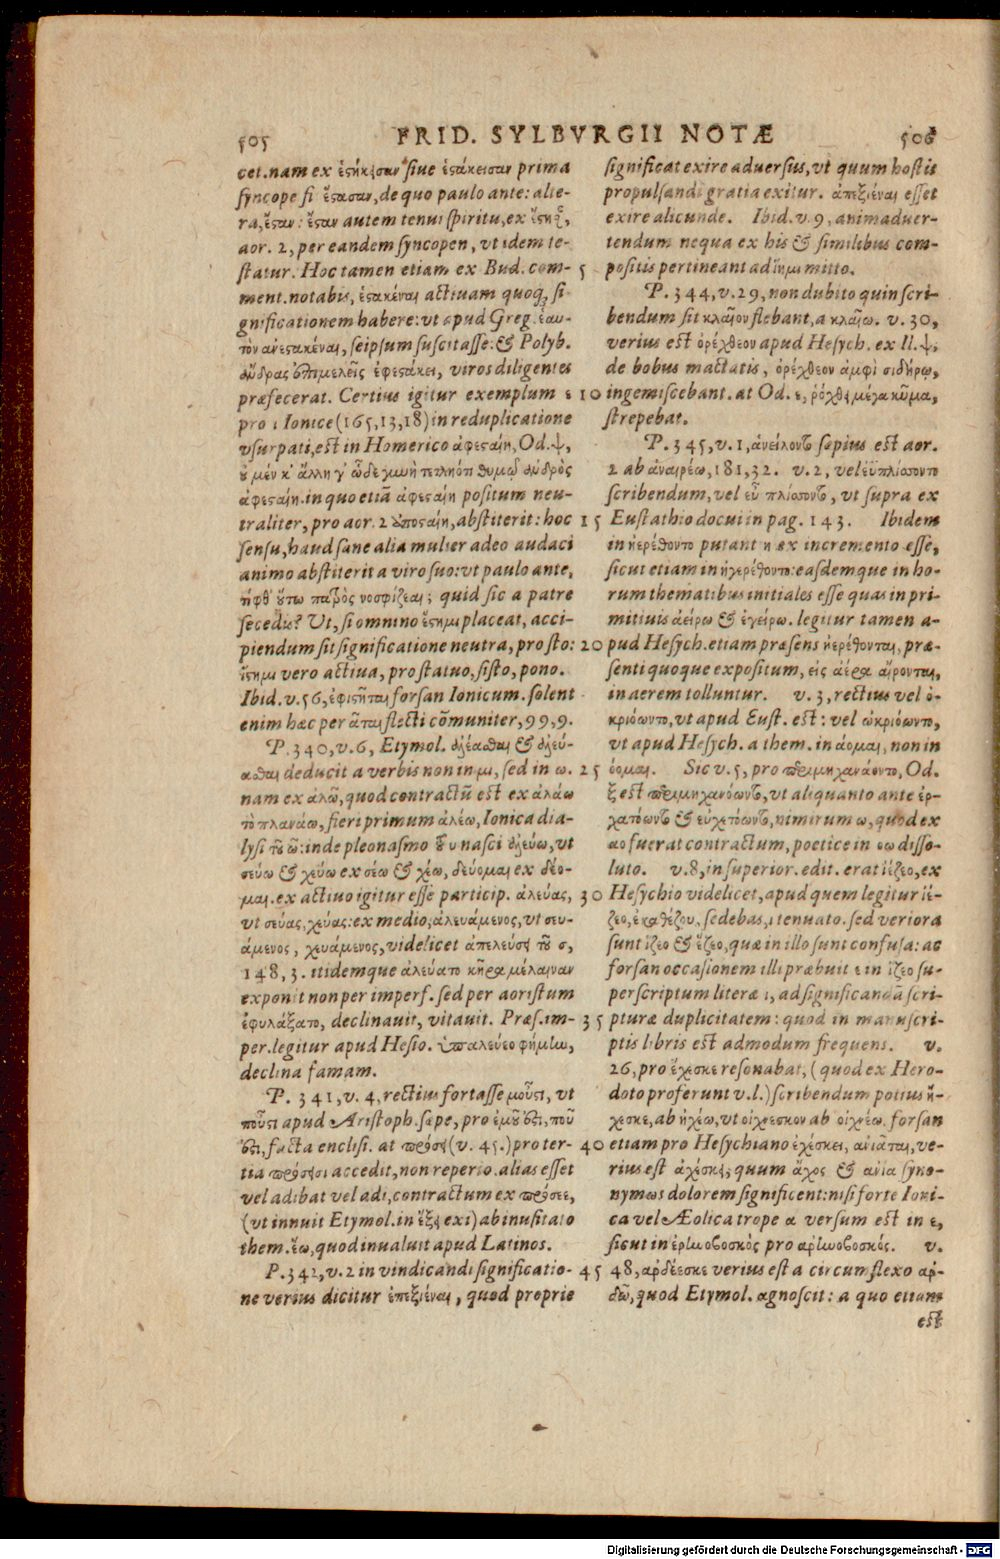 505 FRID. SYLBVRGII NOTÆ 506
cet. nam ex ἑστήκεισαν siue ἑστάκεισαν prima
syncope fi ἕστασαν, de quo paulo ante: alte-
ra, ἕσταν: ἔσταν autem tenui spiritu, ex
aor. 2, per eandem syncopen, vt idem te-
statur. Hoc tamen etiam ex Bud. com-
ment. notabis, ἑστακέναι actiuam quoq; si-
gnificationem habere: vt apud Greg. ἑαυ-
τὸν ἀνεστακέναι, seipsum suscitasse: & Polyb.
ἄνδρας ἐπιμελεῖς ἐφεστάκει, viros diligentes
præfecerat. Certius igitur exemplum ε
pro ι Ionice (165,13,18) in reduplicatione
vsurpati, est in Homerico ἀφεσταίη, Od. ψ,
ὐ μέν κ' ἄλλη γ' ὧδε γυνὴ τετληότι θυμῷ ἀνδρὸς
ἀφεσταίη. in quo etiã ἀφεσταίη positum neu-
traliter, pro aor. 2 ὑποσταίη, abstiterit: hoc
sensu, haud sane alia mulier adeo audaci
animo abstiterit a viro suo: vt paulo ante,
τίφθ' οὕτω πατρὸς νοσφίζεαι; quid sic a patre
secedis? Vt, si omnino ἕστημι placeat, acci-
piendum sit significatione neutra, pro sto:
ἵστημι vero actiua, pro statuo, sisto, pono.
Ibid. v. 56, ἐφιστῆται forsan Ionicum. solent
enim hæc per ᾶται flecti cõmuniter, 99, 9.
P. 340, v. 6, Etymol. ἀλέασθαι & ἀλεύ-
ασθαι deducit a verbis non in μι, sed in ω.
nam ex ἀλῶ, quod contractũ est ex ἀλάω
τὸ πλανάω, fieri primum ἀλέω, Ionica dia-
lysi τοῦ ῶ: inde pleonasmo τοῦ υ nasci ἀλεύω, vt
σεύω & χεύω ex σέω & χέω, δεύομαι ex δέο-
μαι. ex actiuo igitur esse particip. ἀλεύας,
vt σεύας, χεύας: ex medio, ἀλευάμενος, vt σευ-
άμενος, χευάμενος, videlicet ἀπελεύσει τοῦ σ,
148, 3. itidemque ἀλεύατο κῆρα μέλαιναν
exponit non per imperf. sed per aoristum
ἐφυλάξατο, declinauit, vitauit. Præs. im-
per. legitur apud Hesio. ὑπαλεύεο φήμην,
declina famam.
P. 341, v. 4, rectius fortasse μοῦστι, vt
ποῦστι apud Aristoph. sæpe, pro ἐμοῦ ἐστι, ποῦ
ἐστι, facta enclisi. at πρόσει (v. 45.) pro ter-
tia πρόσεισι accedit, non reperio. alias esset
vel adibat vel adi, contractum ex πρόσεε,
(vt innuit Etymol. in ἔξει exi) ab inusitato
them. ἕω, quod inualuit apud Latinos.
P. 342, v. 2 in vindicandi significatio-
ne verbus dicitur ἐπεξιέναι, quod proprie
5
10
15
20
25
30
35
40
45
significat exire aduersus, vt quum hostis
propulsandi gratia exitur. ἀπεξιέναι esset
exire alicunde. Ibid. v. 9, animaduer-
tendum nequa ex his & similibus com-
positis pertineant ad ἵημι mitto.
P. 344, v. 29, non dubito quin scri-
bendum sit κλαῖον flebant, a κλαίω. v. 30,
verius est ὀρέχθεον apud Hesych. ex Il. ψ,
de bobus mactatis, ὀρέχθεον ἀμφὶ σιδήρῳ,
ingemiscebant. at Od. ε, ῥόχθει μέγα κῦμα,
strepebat.
P. 345, v. 1, ἀνείλοντο sæpius est aor.
2 ab ἀναιρέω, 181, 32. v. 2, vel ἐϋπλίσσοντο
scribendum, vel εὖ πλίσσοντο, vt supra ex
Eustathio docui in pag. 143. Ibidem
in ἠερέθοντο putant η ex incremento esse,
sicut etiam in ἠγερέθοντο: easdemque in ho-
rum thematibus initiales esse quas in pri-
mitiuis ἀείρω & ἐγείρω. legitur tamen a-
pud Hesych. etiam præsens ἠερέθονται, præ-
senti quoque expositum, εἰς ἀέρα αἴρονται,
in aerem tolluntur. v. 3, rectius vel ὀ-
κριόωντο, vt apud Eust. est: vel ὠκριόωντο,
vt apud Hesych. a them. in άομαι, non in
όομαι. Sic v. 5, pro περιμηχανάοντο, Od.
ξ est περιμηχανόωντο, vt aliquanto ante ἐρ-
χατόωντο & εὐχετόωντο, nimirum ω, quod ex
αο fuerat contractum, poetice in οω disso-
luto. v. 8, in superior. edit. erat ἵεζεο, ex
Hesychio videlicet, apud quem legitur ἵε-
ζεο, ἐκαθέζου. sedebas, ι tenuato. sed veriora
sunt ἵζεο & ἕζεο, quæ in illo sunt confusa: ac
forsan occasionem illi præbuit ε in ἵζεο su-
perscriptum literæ ι, ad significandã scri-
pturæ duplicitatem: quod in manuscri-
ptis libris est admodum frequens. v.
26, pro ἔχεσκε resonabat, (quod ex Hero-
doto proferunt v. l.) scribendum potius ἤ-
χεσκε, ab ἠχέω, vt οἴχνεσκον ab οἰχνέω. forsan
etiam pro Hesychiano ἐχέσκει, ἀνιᾶται, ve-
rius est ἀχέσκει, quum ἄχος & ἀνία syno-
nymως dolorem significent: nisi forte Ioni-
ca vel Æolica trope α versum est in ε,
sicut in ἐρνωβοσκὸς pro ἀρνωβοσκός. v.
48, ἀρδέεσκε verius est a circumflexo ἀρ-
δῶ, quod Etymol. agnoscit: a quo etiam
est
Digitalisierung gefördert durch die Deutsche Forschungsgemeinschaft - DFG